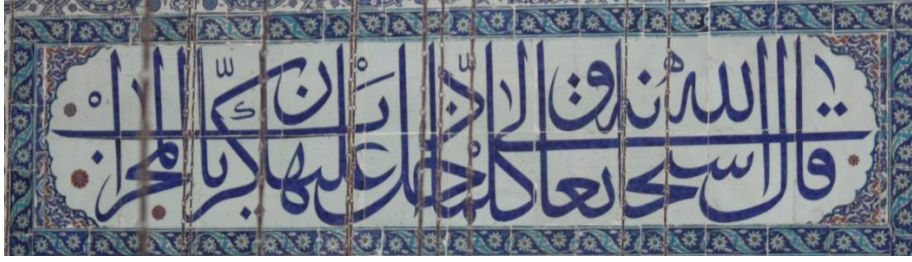 قال الله سبحانه وتعالى كلما دخل عليها زكريا المحراب